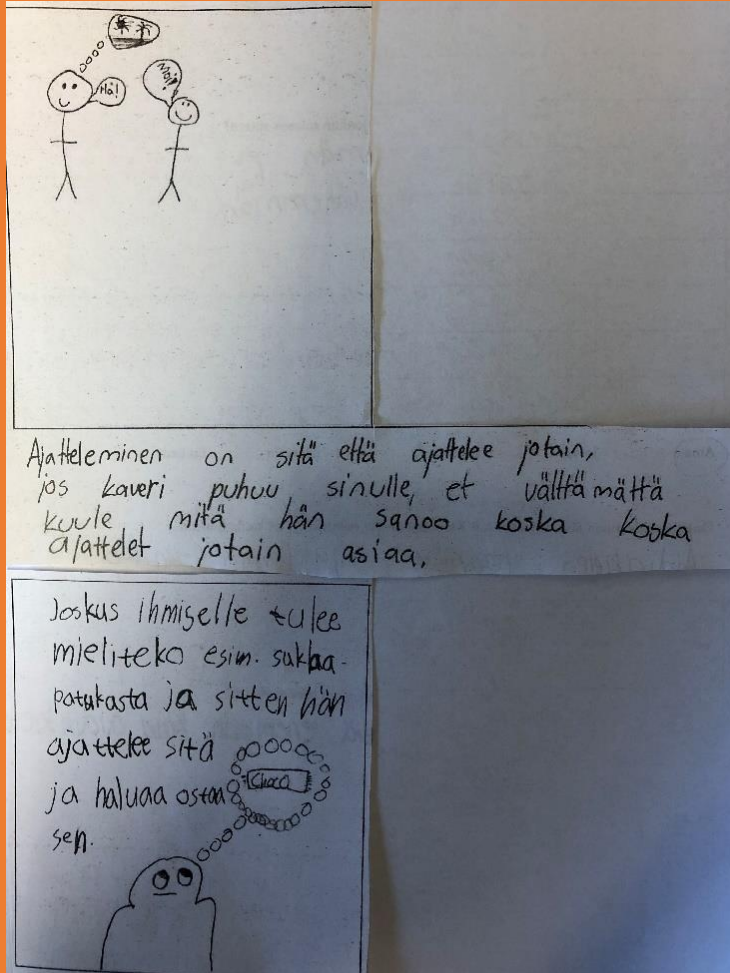 Hä!
Moi!
Ajatteleminen on sitä että ajattelee jotain,
jos kaveri puhuu sinulle, et välttämättä
kuule mitä hän sanoo koska koska
ajattelet jotain asiaa.
Joskus ihmiselle tulee
mieliteko esim. suklaa-
patukasta ja sitten hän
ajattelee sitä
Choco
ja haluaa ostaa
sen.